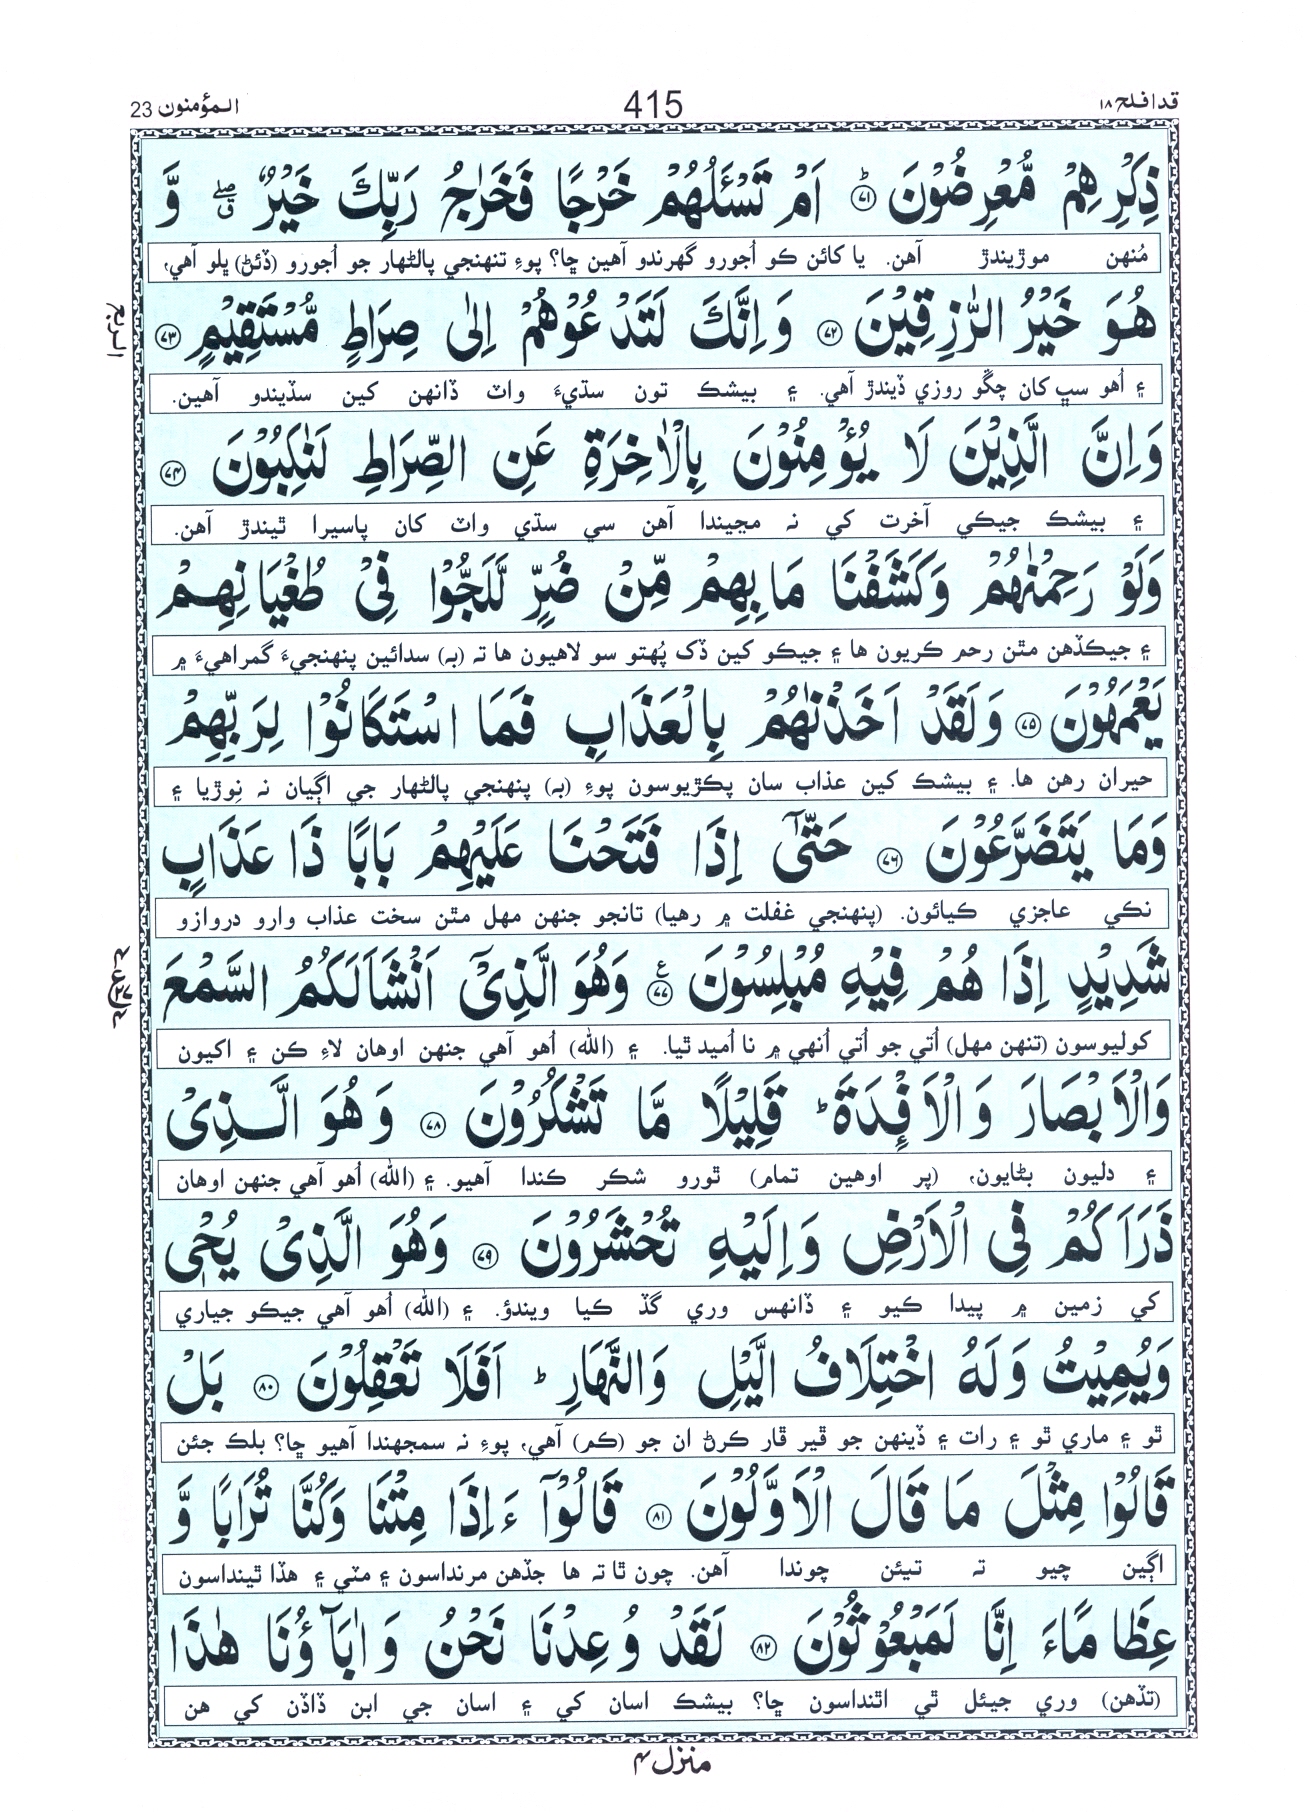 قد افلح ١٨
415
المؤمنون 23
ذِكْرِهِمْ مُّعْرِضُوْنَ ؕ‏﴿۷۱﴾ اَمْ تَسْـَٔلُهُمْ خَرْجًا فَخَرَاجُ رَبِّكَ خَيْرٌ ۖۗ وَّ
مُنهن موڙيندڙ آهن. يا کائن ڪو اُجورو گهرندو آهين ڇا؟ پوءِ تنهنجي پالڻهار جو اُجورو (ڏئڻ) ڀلو آهي،
هُوَ خَيْرُ الرّٰزِقِيْنَ ﴿۷۲﴾ وَاِنَّكَ لَتَدْعُوْهُمْ اِلٰى صِرَاطٍ مُّسْتَقِيْمٍ ﴿۷۳﴾
۽ اُهو سڀ کان چڱو روزي ڏيندڙ آهي. ۽ بيشڪ تون سڌيءَ واٽ ڏانهن کين سڏيندو آهين.
وَاِنَّ الَّذِيْنَ لَا يُؤْمِنُوْنَ بِالْاٰخِرَةِ عَنِ الصِّرَاطِ لَنٰكِبُوْنَ ﴿۷۴﴾
۽ بيشڪ جيڪي آخرت کي نہ مڃيندا آهن سي سڌي واٽ کان پاسيرا ٿيندڙ آهن.
وَلَوْ رَحِمْنٰهُمْ وَكَشَفْنَا مَا بِهِمْ مِّنْ ضُرٍّ لَّلَجُّوْا فِيْ طُغْيَانِهِمْ
۽ جيڪڏهن مٿن رحم ڪريون ها ۽ جيڪو کين ڏک پُهتو سو لاهيون ها تہ (بہ) سدائين پنهنجيءَ گمراهيءَ ۾
يَعْمَهُوْنَ ﴿۷۵﴾ وَلَقَدْ اَخَذْنٰهُمْ بِالْعَذَابِ فَمَا اسْتَكَانُوْا لِرَبِّهِمْ
حيران رهن ها. ۽ بيشڪ کين عذاب سان پڪڙيوسون پوءِ (بہ) پنهنجي پالڻهار جي اڳيان نہ نِوڙيا ۽
وَمَا يَتَضَرَّعُوْنَ ﴿۷۶﴾ حَتّٰٓى اِذَا فَتَحْنَا عَلَيْهِمْ بَابًا ذَا عَذَابٍ
نڪي عاجزي ڪيائون. (پنهنجي غفلت ۾ رهيا) تانجو جنهن مهل مٿن سخت عذاب وارو دروازو
شَدِيْدٍ اِذَا هُمْ فِيْهِ مُبْلِسُوْنَ ﴿۷۷﴾ ع وَهُوَ الَّذِيْٓ اَنْشَاَ لَكُمُ السَّمْعَ
کوليوسون (تنهن مهل) اُتي جو اُتي اُنهي ۾ نا اُميد ٿيا. ۽ (الله) اُهو آهي جنهن اوهان لاءِ ڪن ۽ اکيون
وَالْاَبْصَارَ وَالْاَفْـِٕدَةَ ؕ قَلِيْلًا مَّا تَشْكُرُوْنَ ﴿۷۸﴾ وَهُوَ الَّذِيْ
۽ دليون بڻايون، (پر اوهين تمام) ٿورو شڪر ڪندا آهيو. ۽ (الله) اُهو آهي جنهن اوهان
ذَرَاَكُمْ فِي الْاَرْضِ وَاِلَيْهِ تُحْشَرُوْنَ ﴿۷۹﴾ وَهُوَ الَّذِيْ يُحْيٖ
کي زمين ۾ پيدا ڪيو ۽ ڏانهس وري گڏ ڪيا ويندؤ. ۽ (الله) اُهو آهي جيڪو جياري
وَيُمِيْتُ وَلَهُ اخْتِلَافُ الَّيْلِ وَالنَّهَارِ ؕ اَفَلَا تَعْقِلُوْنَ ﴿۸۰﴾ بَلْ
ٿو ۽ ماري ٿو ۽ رات ۽ ڏينهن جو ڦير ڦار ڪرڻ ان جو (ڪم) آهي، پوءِ نہ سمجهندا آهيو ڇا؟ بلڪ جئن
قَالُوْا مِثْلَ مَا قَالَ الْاَوَّلُوْنَ ﴿۸۱﴾ قَالُوْٓا ءَاِذَا مِتْنَا وَكُنَّا تُرَابًا وَّ
اڳين چيو تہ تيئن چوندا آهن. چون ٿا تہ ها جڏهن مرنداسون ۽ مٽي ۽ هڏا ٿينداسون
عِظَامًا ءَاِنَّا لَمَبْعُوْثُوْنَ ﴿۸۲﴾ لَقَدْ وُعِدْنَا نَحْنُ وَاٰبَآؤُنَا هٰذَا
(تڏهن) وري جيئل ٿي اٿنداسون ڇا؟ بيشڪ اسان کي ۽ اسان جي ابن ڏاڏن کي هن
منزل ۴